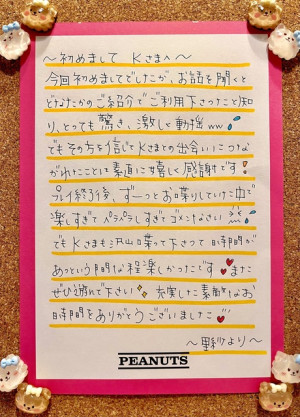 〜初めまして Kさまへ〜
今回初めましてでしたが、お話を聞くと
どなたかのご紹介でご利用下さったこと知
り、とっても驚き、激しく動揺ww
でもその方を信じてKさまとの出会いにつな
がれたことに素直に嬉しく感謝です!
プレイ終了後、ずーっとお喋りしていた中で
楽しすぎてペラペラしすぎてゴメンなさい
でもKさまも沢山喋って下さって時間が
あっという間な程楽しかったです また
ぜひ遊んで下さい 充実した素敵なお
時間をありがとうございました
〜より〜
PEANUTS